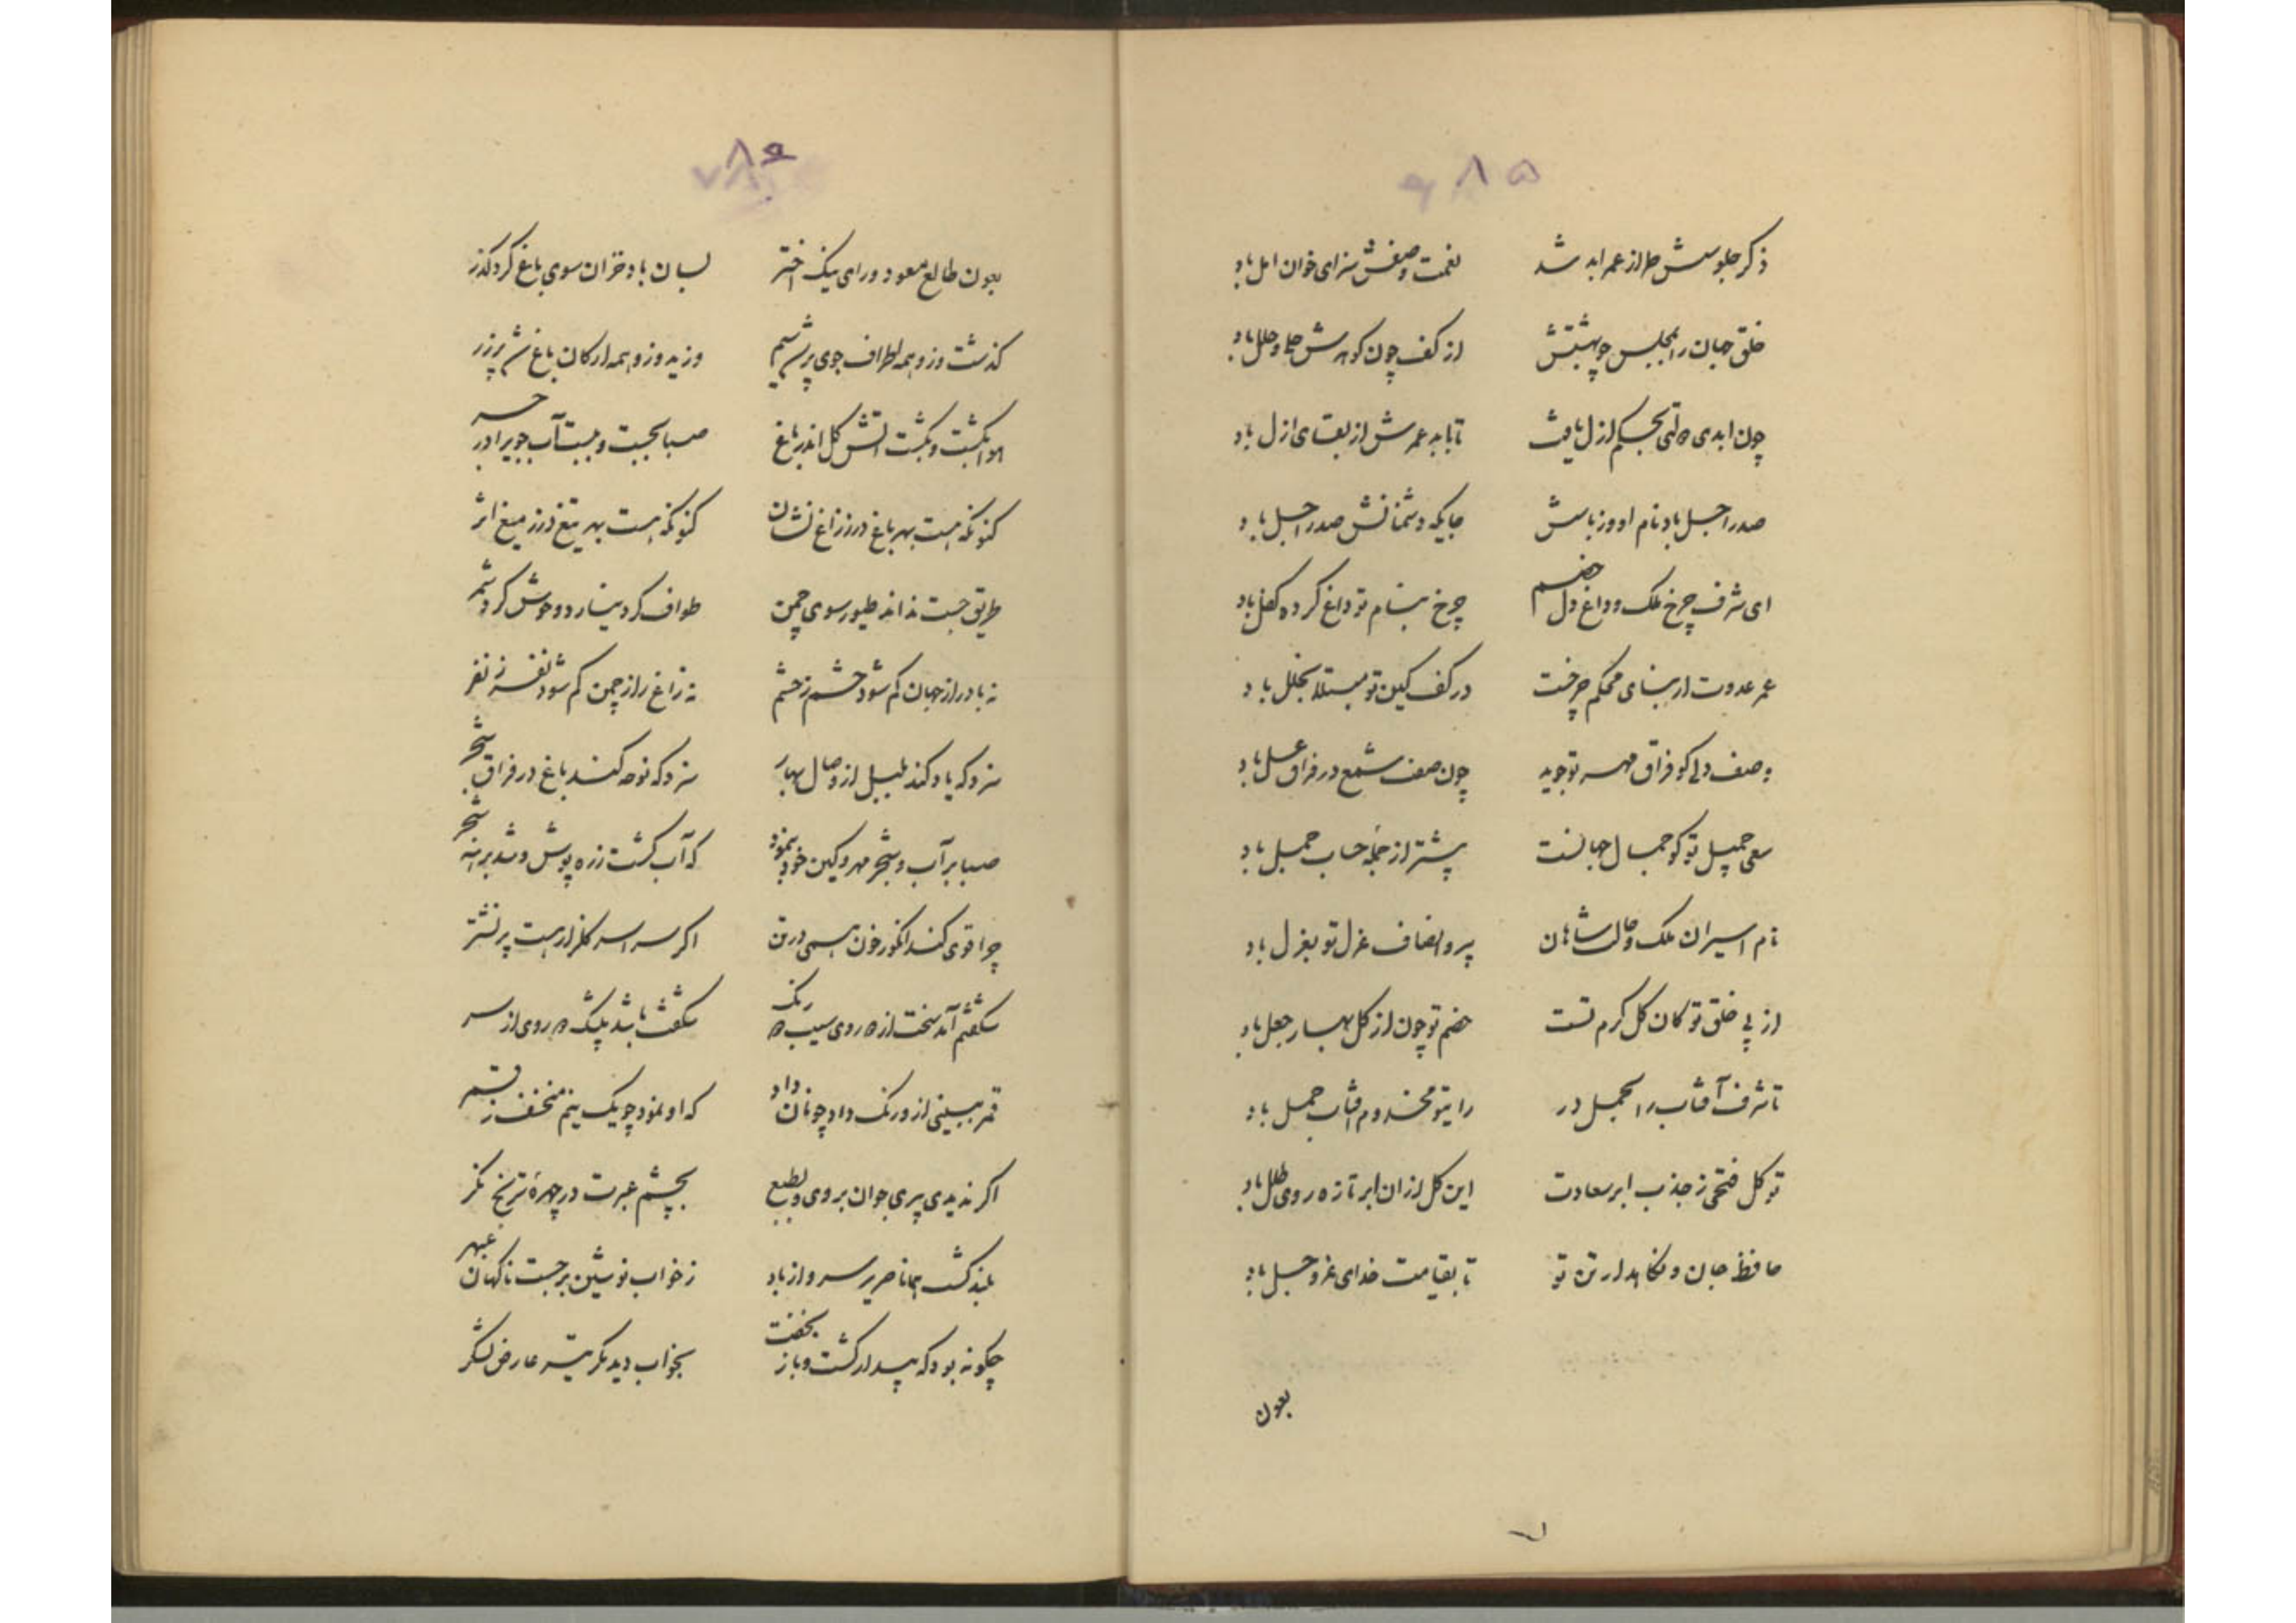 ۸۵
ذکر جلوسش طراز عمر ابد شد نعمت وصفش سزای خوان امل باد
خلق جهان را بمجلس چو بهشتش از کف چون کوثرش حلی و حلل باد
چون ابدی دولتی بحکم ازل یافت تا بابد عمرش از بقای ازل باد
صدر اجل باد نام او وز باسش جایکه دشمنانش صدر اجل باد
ای شرف چرخ ملک و داغ دل خصم چرخ بنام تو داغ کرده کفل باد
عمر عدوت ار بنای محکم چرخست در کف کین تو مبتلا بخلل باد
وصف دلی کو فراق مهر تو جوید چون صفت شمع در فراق عسل باد
سعی جمیل تو کو جمال جهانست پیشتر از جمله حساب جمل باد
نام اسیران ملک و مالت شاهان پر و انصاف عزل تو بغزل باد
از پی خلق تو کان کل کرم تست خصم تو چون از کل بهار جعل باد
تا شرف آفتاب را بحمل در رایتو مخدوم آفتاب حمل باد
تو کل فتحی ز جذب ابر سعادت این کل از ان ابر تازه روی طلل باد
حافظ جان و نکاهدار تن تو تا بقیامت خدای عز و جل باد
بعون
۸۶
بعون طالع مسعود و رای نیک اختر بسان باد خزان سوی باغ کرد کذر
کذشت وز و همه اطراف جوی پر شد سیم وزید وز و همه ارکان باغ شد پر زر
هوا بکشت و بکشت آتش کل اندر باغ صبا بجست و ببست آب جویرا در
کنونکه هست بهر باغ در ز زاغ نشان کنونکه هست بهر تیغ در ز میغ اثر
طریق جست نداند طیور سوی چمن طواف کرد نیارد وحوش کرد شمر
نه باد را از جهان کم شود حشم ز حشم نه زاغ را از چمن کم شود نفر ز نفر
سزد که یاد کند بلبل از وصال بهار سزد که نوحه کند باغ در فراق شجر
صبا بر آب و شجر مهر و کین خود بنمود که آب کشت زره پوش و شد برهنه شجر
چرا قوی کند انکور خون همی در تن اکر سراسر کلزار هست پر نشتر
شکفتم آمد سخت از ده روی سیب ده رنک شکفت باشد بیشک ده روی از سر
قمر ببینی از و رنک داد چونان داد که او نمود چو یک نیم منخسف ز قسم
اکر ندیدی پیری جوان بروی و بطبع بچشم عبرت در چهره ترنج نکر
بلند کشت همانا صریر سرو از باد ز خواب نوشین برجست ناکهان عبهر
چکونه بود که بیدار کشت و باز بخفت بخواب دید مکر تیر عارض لشکر